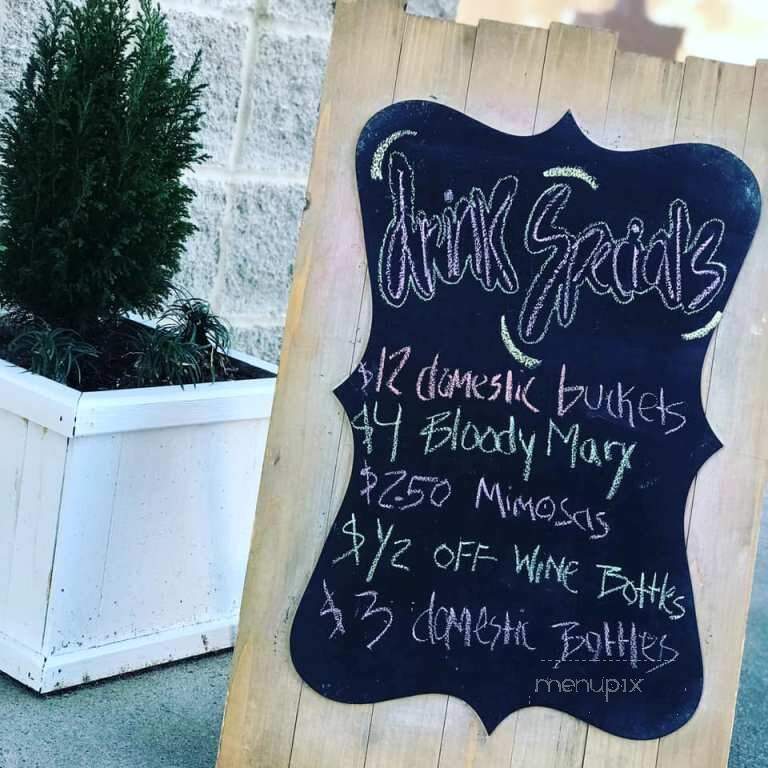 drink Specials
$12 domestic buckets
$4 Bloody Mary
$2.50 Mimosas
$1/2 OFF Wine Bottles
$3 domestic Bottles
menupix